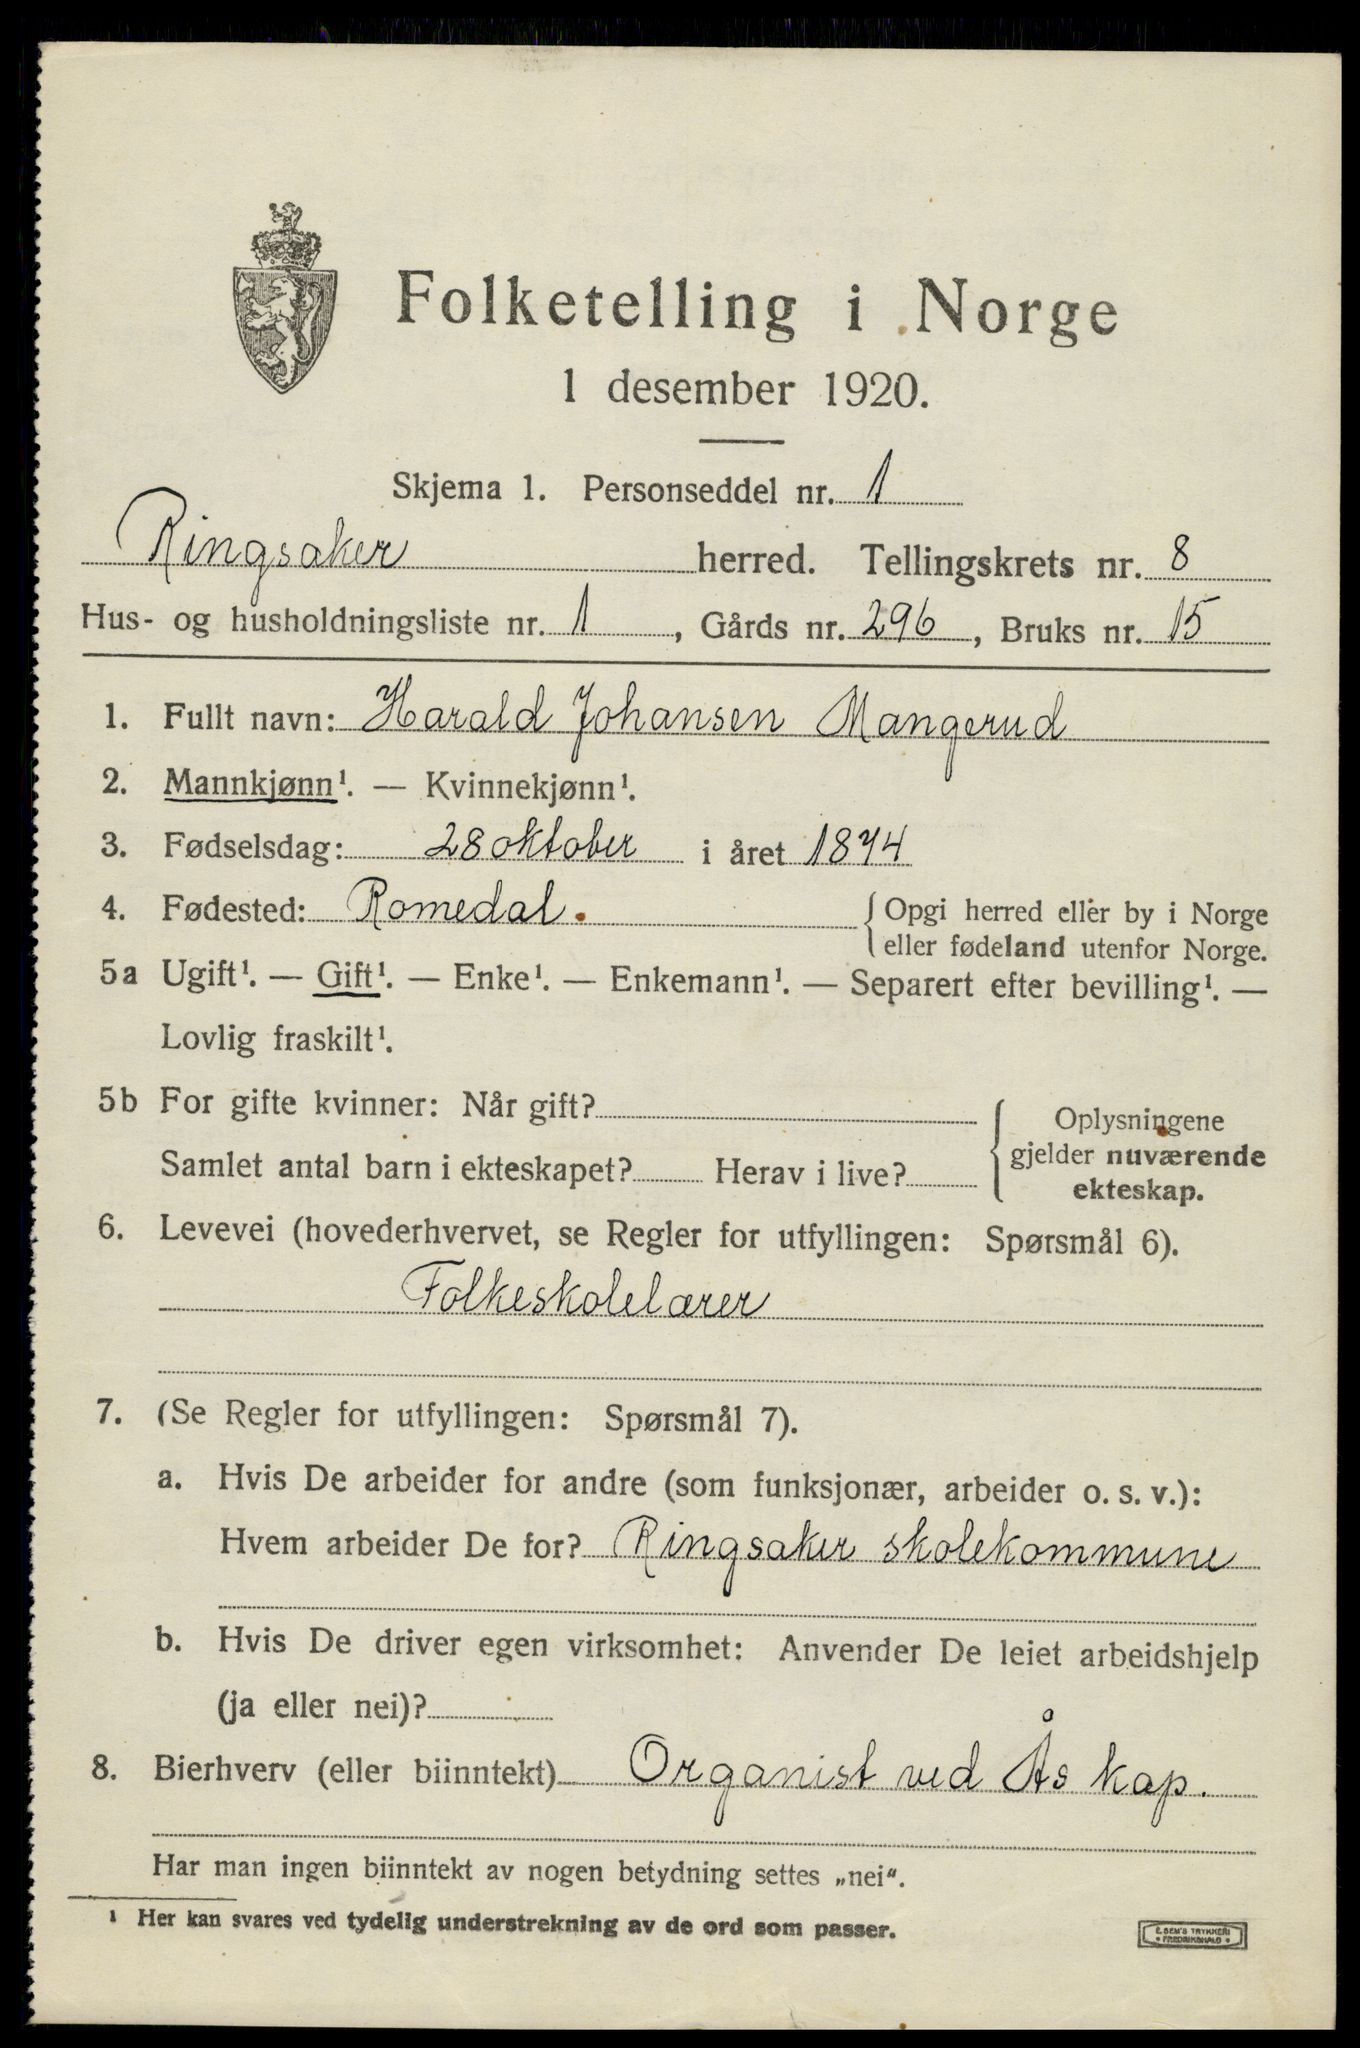 Folketelling i Norge
1 desember 1920.
Skjema 1. Personseddel nr. 1
Ringsaker herred. Tellingskrets nr. 8
Hus- og husholdningsliste nr. 1, Gårds nr. 296, Bruks nr. 15
1. Fullt navn: Harald Johansen Mangerud
2. Mannkjønn¹. — Kvinnekjønn¹.
3. Fødselsdag: 28 oktober i året 1874
4. Fødested: Romedal. { Opgi herred eller by i Norge
eller fødeland utenfor Norge.
5a Ugift¹. — Gift¹. — Enke¹. — Enkemann¹. — Separert efter bevilling¹. —
Lovlig fraskilt¹.
5b For gifte kvinner: Når gift?
Samlet antal barn i ekteskapet? Herav i live?
Oplysningene
gjelder nuværende
ekteskap.
6. Levevei (hovederhvervet, se Regler for utfyllingen: Spørsmål 6).
Folkeskolelærer
7. (Se Regler for utfyllingen: Spørsmål 7).
a. Hvis De arbeider for andre (som funksjonær, arbeider o. s. v.):
Hvem arbeider De for? Ringsaker skolekommune
b. Hvis De driver egen virksomhet: Anvender De leiet arbeidshjelp
(ja eller nei)?
8. Bierhverv (eller biinntekt) Organist ved Ås kap.
Har man ingen biinntekt av nogen betydning settes „nei“.
¹ Her kan svares ved tydelig understrekning av de ord som passer.
E. SEM'S TRYKKERI
• FREDRIKSHALD •